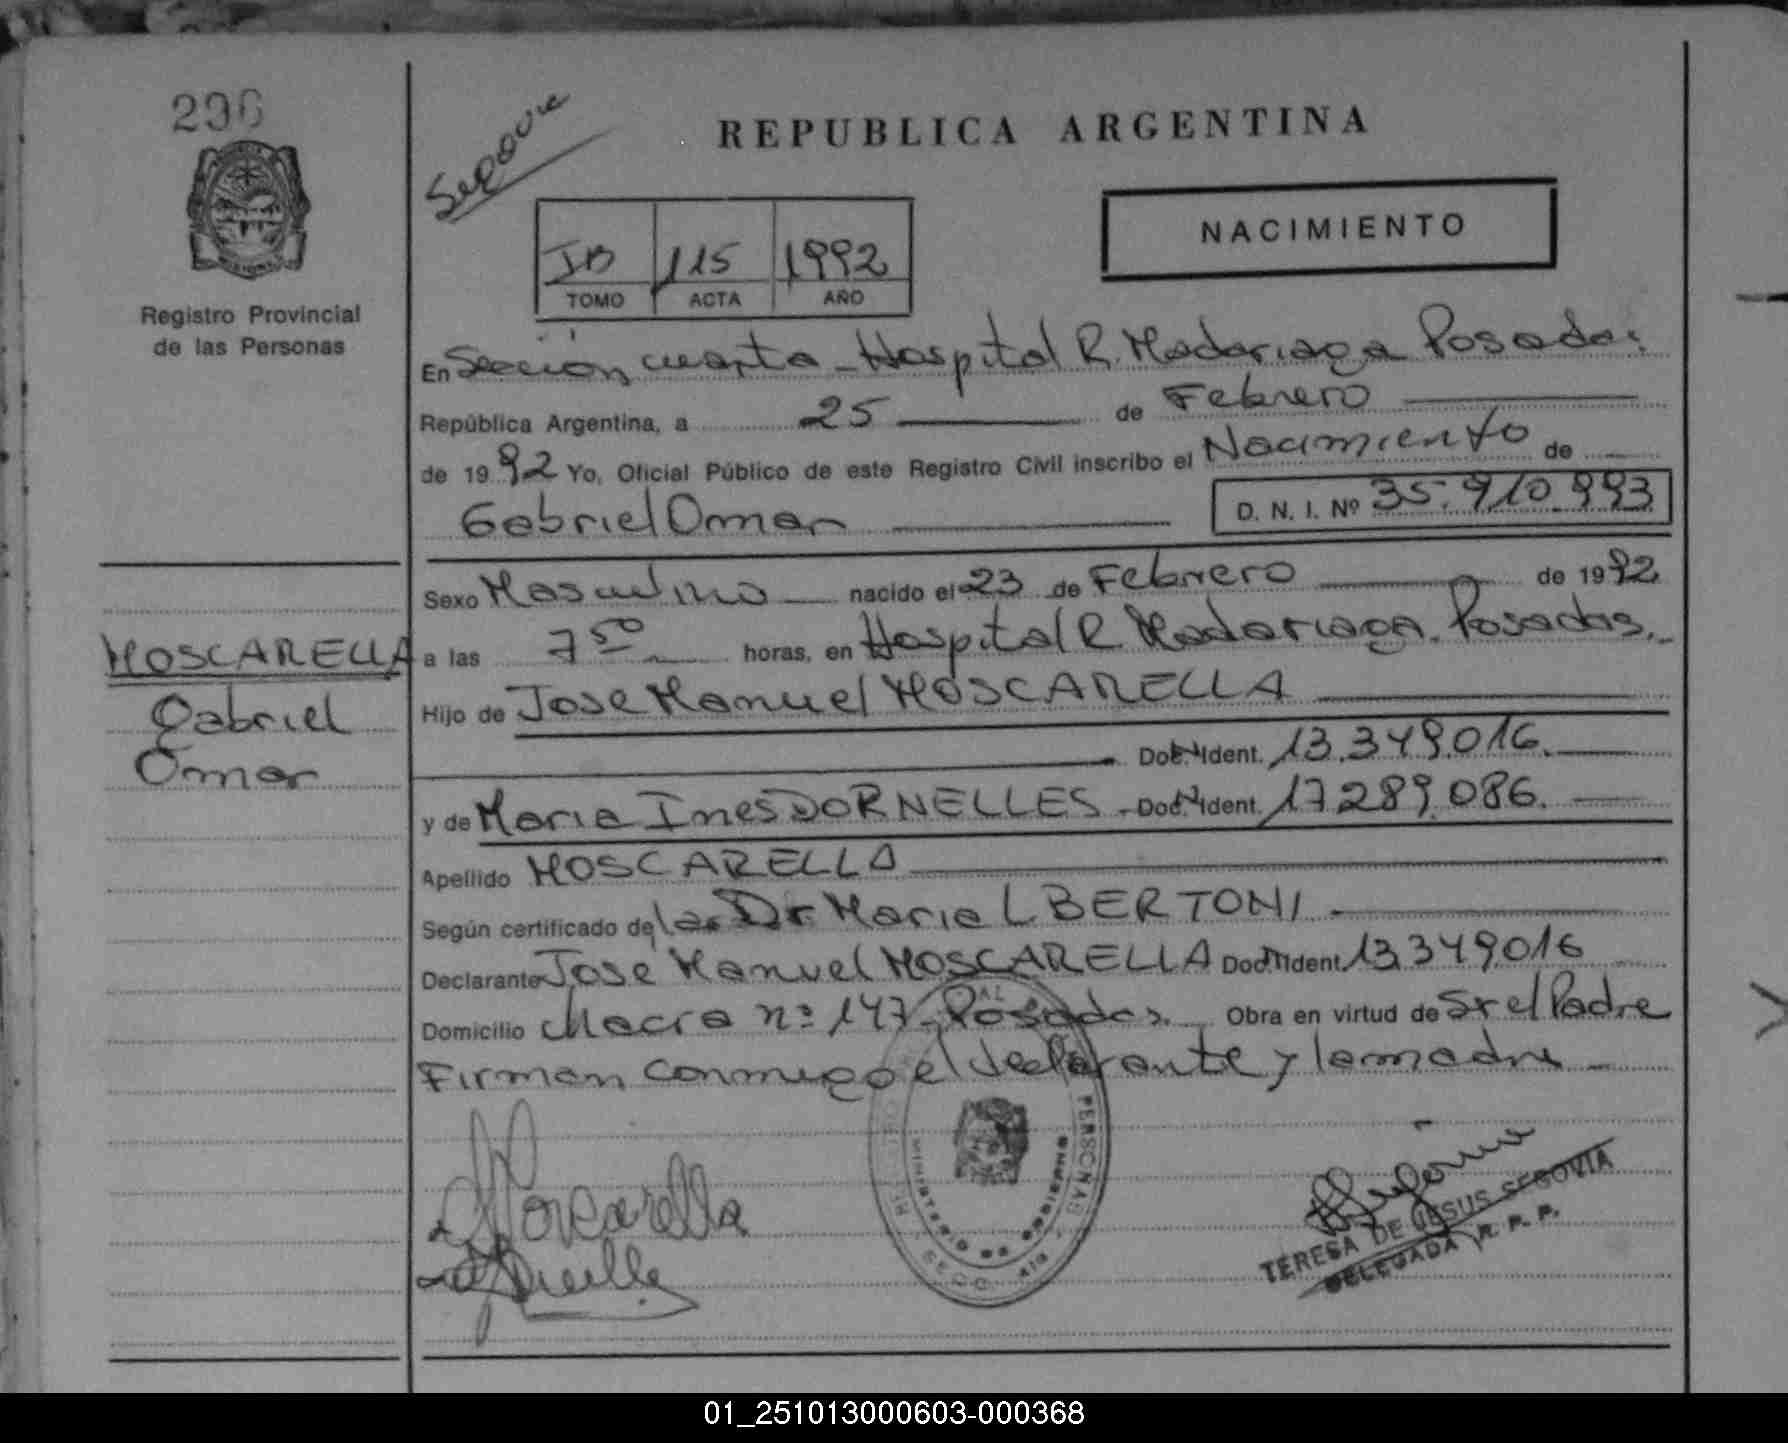 296
Registro Provincial
de las Personas
MOSCARELLA
Gabriel
Omar
REPUBLICA ARGENTINA
NACIMIENTO
115 1992
TOMO ACTA AÑO
En Sección cuarta - Hospital R. Madariaga Posadas
República Argentina, a 25 de Febrero
de 1992 Yo, Oficial Público de este Registro Civil inscribo el Nacimiento de
Gabriel Omar D. N. I. Nº 35.910.993
Sexo Masculino nacido el 23 de Febrero de 1992
a las 7 50 horas, en Hospital R Madariaga. Posadas.
Hijo de Jose Manuel MOSCARELLA
Doc. Ident. 13.349.016.
y de Maria Ines DORNELLES - Doc. Ident. 17.289.086.
Apellido MOSCARELLA
Según certificado de la Dr Maria L BERTONI
Declarante Jose Manuel MOSCARELLA Doc. Ident. 13.349016
Domicilio Macra nº 147 - Posadas. Obra en virtud de Sr el Padre
Firman conmigo el declarante y la madre
Moscarella
TERESA DE JESUS SEGOVIA
DELEGADA R. P. P.
PERSONAS
MINISTERIO DE GOBIERNO
SECC. 4ta
01_251013000603-000368